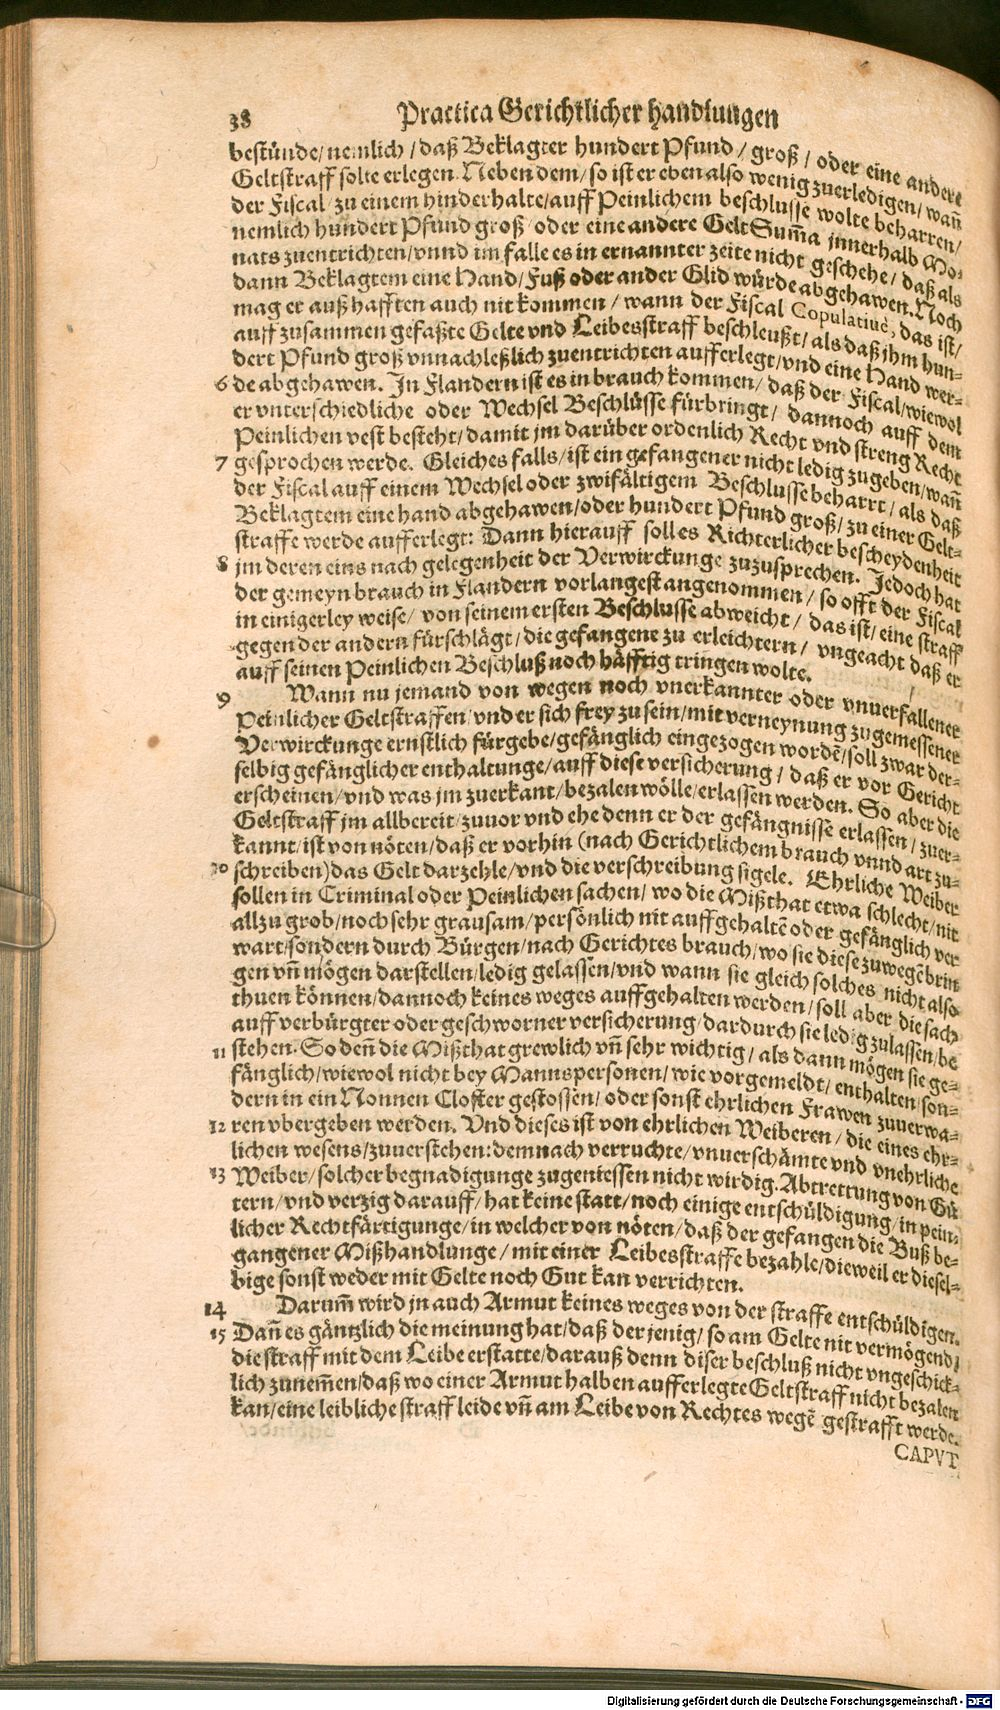 38 Practica Gerichtlicher handlungen
bestünde/ nemlich / daß Beklagter hundert Pfund / groß / oder eine andere
Geltstraff solte erlegen. Neben dem/ so ist er eben also wenig zuerledigen/ wañ
der Fiscal / zu einem hinderhalte/ auff Peinlichem beschlusse wolte beharren/
nemlich hundert Pfund groß / oder eine andere Gelt Sum̃a jnnerhalb Mo-
nats zuentrichten/ vnnd im falle es in ernannter zeite nicht geschehe / daß als
dann Beklagtem eine Hand/ Fuß oder ander Glid würde abgehawen. Noch
mag er auß hafften auch nit kommen / wann der Fiscal Copulatiuè, das ist/
auff zusammen gefaßte Gelte vnd Leibesstraff beschleußt/ als daß jhm hun-
dert Pfund groß vnnachleßlich zuentrichten aufferlegt/ vnd eine Hand wer-
6 de abgehawen. In Flandern ist es in brauch kommen/ daß der Fiscal/ wiewol
er vnterschiedliche oder Wechsel Beschlüsse fürbringt/ dannoch auff dem
Peinlichen vest besteht/ damit jm darüber ordenlich Recht vnd streng Recht
7 gesprochen werde. Gleiches falls/ ist ein gefangener nicht ledig zugeben/ wañ
der Fiscal auff einem Wechsel oder zwifältigem Beschlusse beharrt/ als daß
Beklagtem eine hand abgehawen/ oder hundert Pfund groß/ zu einer Gelt-
straffe werde aufferlegt: Dann hierauff soll es Richterlicher bescheydenheit
8 jm deren eins nach gelegenheit der Verwirckunge zuzusprechen. Jedoch hat
der gemeyn brauch in Flandern vorlangest angenommen / so offt der Fiscal
in einigerley weise/ von seinem ersten Beschlusse abweicht / das ist/ eine straff
gegen der andern fürschlägt/ die gefangene zu erleichtern/ vngeacht daß er
auff seinen Peinlichen Beschluß noch häfftig tringen wolte.
9 Wann nu jemand von wegen noch vnerkannter oder vnuerfallener
Peinlicher Geltstraffen/ vnd er sich frey zu sein/ mit verneynung zugemessener
Verwirckunge ernstlich fürgebe/ gefänglich eingezogen wordẽ/ soll zwar der-
selbig gefänglicher enthaltunge/ auff diese versicherung / daß er vor Gericht
erscheinen/ vnd was jm zuerkant/ bezalen wölle/ erlassen werden. So aber die
Geltstraff jm allbereit/ zuuor vnd ehe denn er der gefängnisse erlassen / zuer-
kannt/ ist von nöten/ daß er vorhin (nach Gerichtlichem brauch vnnd art zu-
10 schreiben) das Gelt darzehle/ vnd die verschreibung sigele. Ehrliche Weiber
sollen in Criminal oder Peinlichen sachen/ wo die Mißthat etwa schlecht/ nit
allzu grob/ noch sehr grausam/ persönlich nit auffgehaltẽ oder gefänglich ver
wart/ sondern durch Bürgen/ nach Gerichtes brauch/ wo sie diese zuwegẽ brin
gen vñ mögen darstellen/ ledig gelassen/ vnd wann sie gleich solches nicht also
thuen können/ dannoch keines weges auffgehalten werden/ soll aber die sach
auff verbürgter oder geschworner versicherung/ dardurch sie ledig zulassen/ be
11 stehen. So deñ die Mißthat grewlich vñ sehr wichtig / als dann mögen sie ge-
fänglich/ wiewol nicht bey Mannspersonen/ wie vorgemeldt/ enthalten/ son-
dern in ein Nonnen Closter gestossen/ oder sonst ehrlichen Frawen zuuerwa-
12 ren vbergeben werden. Vnd dieses ist von ehrlichen Weiberen / die eines ehr-
lichen wesens/ zuuerstehen: demnach verruchte/ vnuerschämte vnd vnehrliche
13 Weiber/ solcher begnadigunge zugeniessen nicht wirdig. Abtrettung von Gü
tern/ vnd verzig darauff/ hat keine statt/ noch einige entschüldigung/ in pein-
licher Rechtfärtigunge/ in welcher von nöten/ daß der gefangen die Buß be-
gangener Mißhandlunge / mit einer Leibesstraffe bezahle/ dieweil er diesel-
bige sonst weder mit Gelte noch Gut kan verrichten.
14 Darum̃ wird jn auch Armut keines weges von der straffe entschüldigen.
15 Dañ es gäntzlich die meinung hat/ daß der jenig/ so am Gelte nit vermögend/
die straff mit dem Leibe erstatte/ darauß denn diser beschluß nicht vngeschick-
lich zunem̃en/ daß wo einer Armut halben aufferlegte Geltstraff nicht bezalen
kan/ eine leibliche straff leide vñ am Leibe von Rechtes wegẽ gestrafft werde.
CAPVT
Digitalisierung gefördert durch die Deutsche Forschungsgemeinschaft - DFG